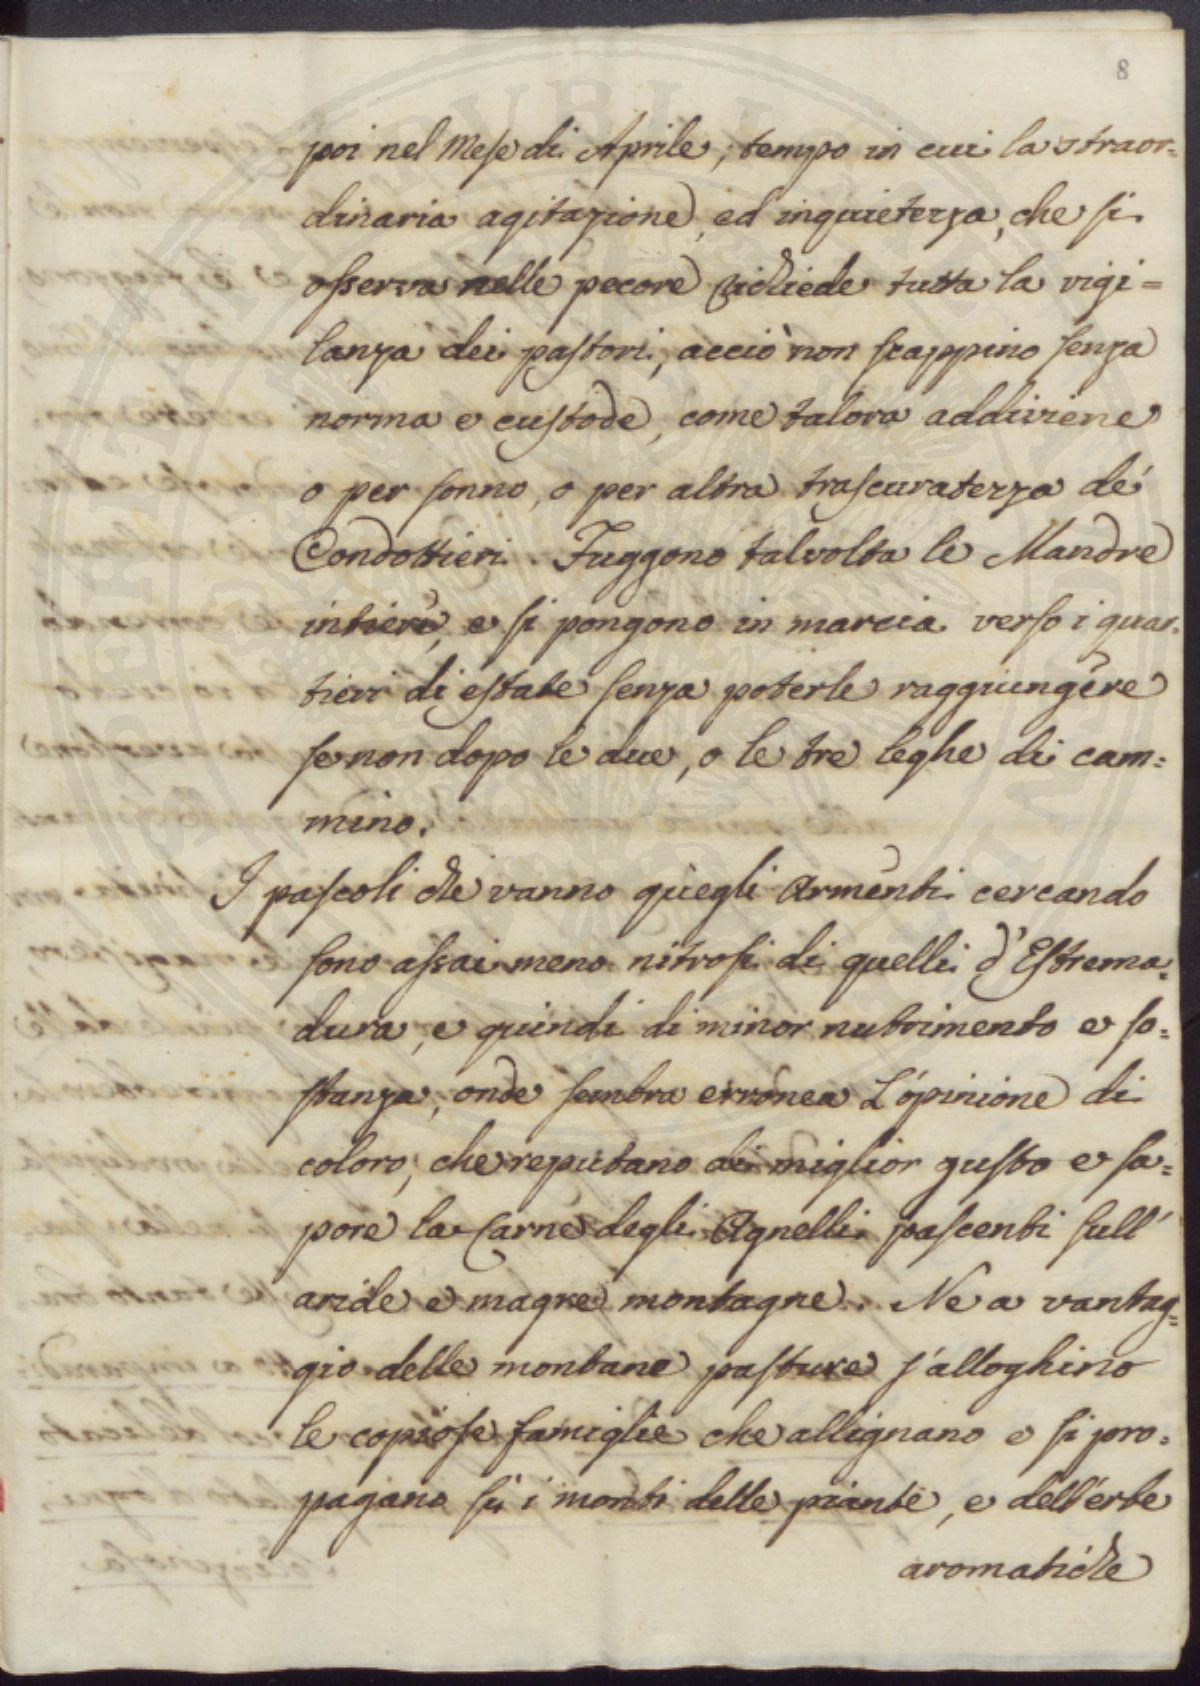 8
poi nel Mese di Aprile, tempo in cui la straor-
dinaria agitazione, ed inquietezza, che si
osserva nelle pecore richiede tutta la vigi=
lanza dei pastori, acciò non scappino senza
norma e custode, come talora addiviene
o per sonno, o per altra trascuratezza de'
Condottieri. Fuggono talvolta le Mandre
intiere, e si pongono in marcia verso i quar-
tieri di estate senza poterle raggiungere
se non dopo le due, o le tre leghe di cam=
mino.
I pascoli che vanno quegli Armenti cercando
sono assai meno nitrosi di quelli d'Estrema=
dura, e quindi di minor nutrimento e so=
stanza, onde sembra erronea L'opinione di
coloro, che reputano di miglior gusto e sa=
pore la Carne degli Agnelli pascenti sull'
aride e magre montagne. Ne a vantag=
gio delle montane pasture s'alloghino
le copiose famiglie che allignano e si pro=
pagano sù i monti delle piante, e dell'erbe
aromatiche